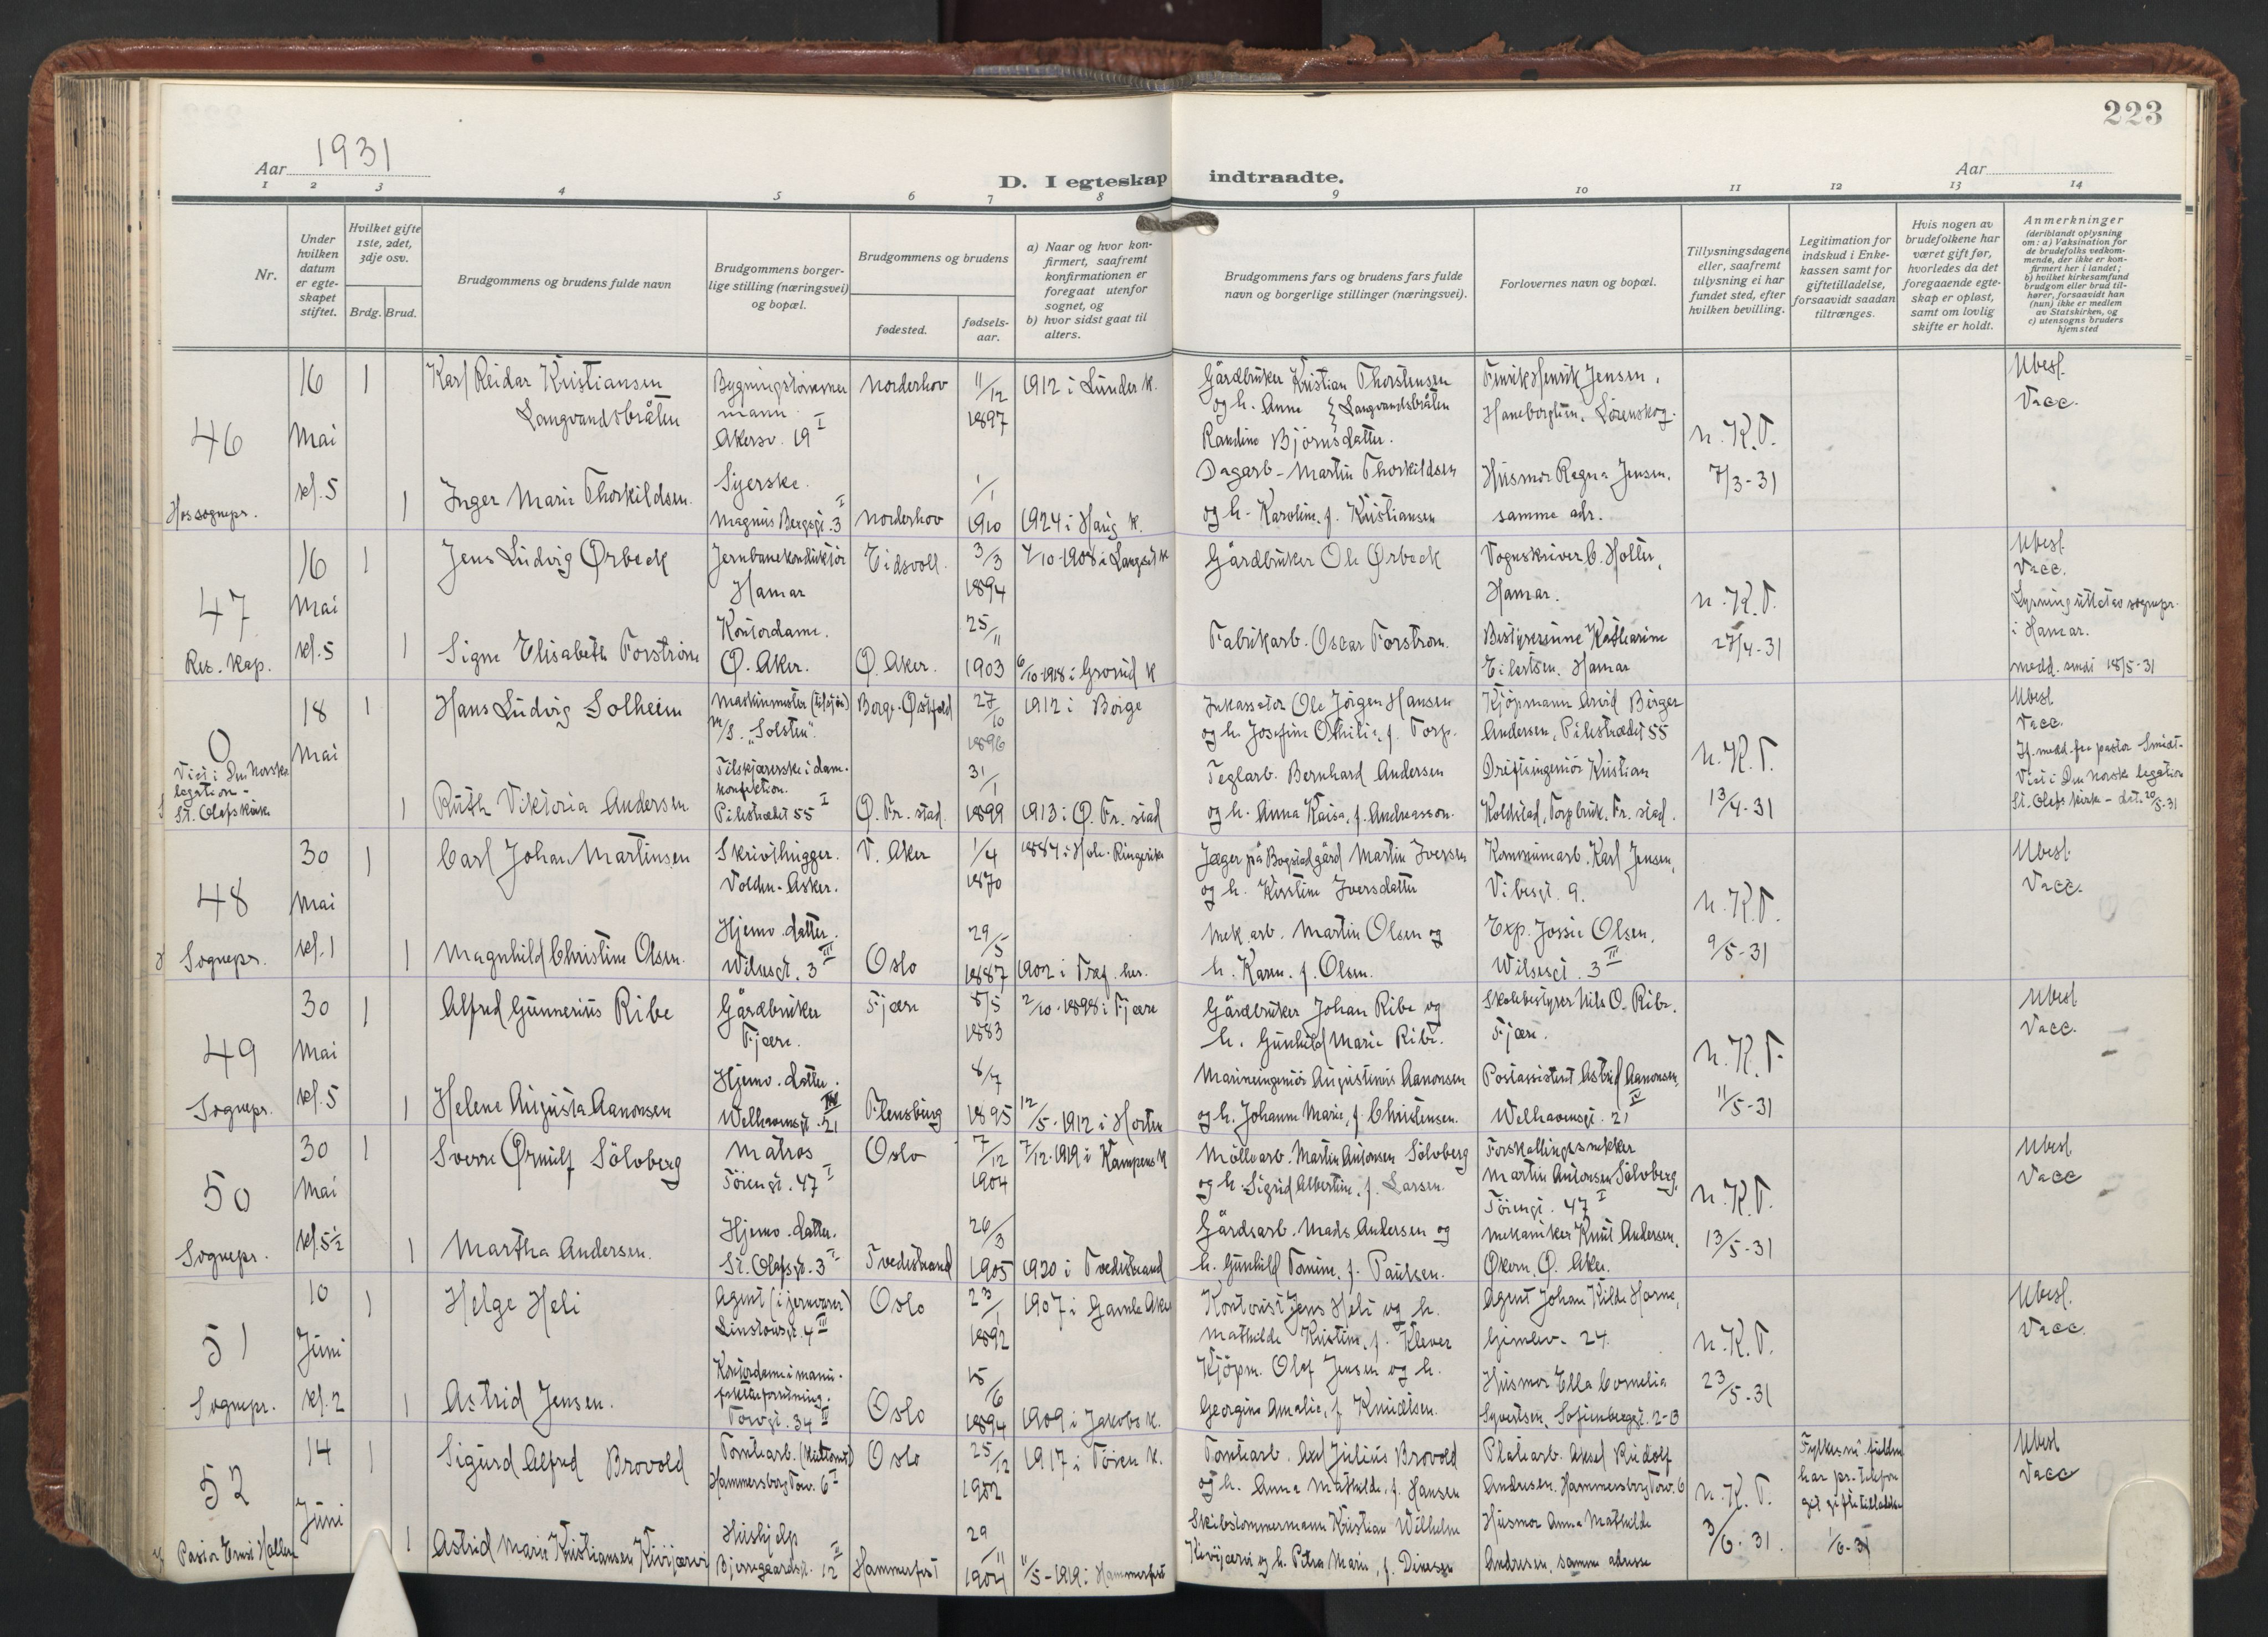 223
Aar 1931
D. I egteskap indtraadte.
Aar
1 2 3 4 5 6 7 8 9 10 11 12 13 14
Nr.
Under hvilken datum er egteskapet stiftet.
Hvilket gifte 1ste, 2det, 3dje osv.
Brdg. Brud.
Brudgommens og brudens fulde navn
Brudgommens borgerlige stilling (næringsvei) og bopæl.
Brudgommens og brudens
fødested.
fødselsaar.
a) Naar og hvor konfirmert, saafremt konfirmationen er foregaat utenfor sognet, og
b) hvor sidst gaat til alters.
Brudgommens fars og brudens fars fulde navn og borgerlige stillinger (næringsvei).
Forlovernes navn og bopæl.
Tillysningsdagene eller, saafremt tillysning ei har fundet sted, efter hvilken bevilling.
Legitimation for indskud i Enkekassen samt for giftetilladelse, forsaavidt saadan tiltrænges.
Hvis nogen av brudefolkene har været gift før, hvorledes da det foregaaende egteskap er opløst, samt om lovlig skifte er holdt.
Anmerkninger
(deriblandt oplysning om: a) Vaksination for de brudefolks vedkommende, der ikke er konfirmert her i landet; b) hvilket kirkesamfund brudgom eller brud tilhører, forsaavidt han (hun) ikke er medlem av Statskirken, og c) utensogns bruders hjemsted
46
Hos sognepr.
16 Mai kl. 5
1
Karl Reidar Kristiansen
Langvandsbråten
Bygningstømmermann
Akersv. 19 I
Norderhov
11/12 1897
1912 i Lunder k.
Gårdbruker Kristian Thorstensen
og h. Anne } Langvandsbråten
Randine Björnsdatter.
Henrik Jensen,
Lørenskog.
n. K.T.
7/3-31
Ubesl.
Vacc.
1
Inger Marie Thorkildsen.
Syerske.
Magnus Bergsgt. 3 I
Norderhov
1/1 1910
1924 i Haug k.
Dagarb. Martin Thorkildsen
og h. Karoline, f. Kristiansen
Husmor Regna Jensen,
samme adr.
47
Res. kap.
16 Mai kl. 5
1
Jens Ludvig Ørbeck
Jernbanekonduktör
Hamar
Eidsvoll
3/3 1894
4/10-1908 i Langset k
Gårdbruker Ole Ørbeck
Vognskriver C. Holter,
Hamar.
n. K.T.
27/4-31
Ubesl.
Vacc.
Lysning uttatt av sognepr.
i Hamar.
medd. sendt 18/5-31
1
Signe Elisabeth Forström
Kontordame.
Ø. Aker.
Ø. Aker.
25/11 1903
6/10-1918 i Grorud k
Fabrikarb. Oscar Forstrom.
Bestyrerinne Katharine
Eilertsen. Hamar
0
Viet i Den norske
legation -
St. Olafs kirke
18 Mai
1
Hans Ludvig Solheim
Maskinmester (tilsjös)
M/S. "Solsten".
Borge-Østfold
27/10 1896
1912 i Borge
Inkassator Ole Jörgen Hansen
og h. Josefine Othilie, f. Torp.
Kjöpmann Arvid Birger
Andersen, Pilestrædet 55
n. K.T.
13/4-31
Ubesl
Vacc.
If. medd. fra pastor Smidt.
Viet i Den norske legation
St. Olafs kirke - dat. 20/5-31
1
Ruth Viktoria Andersen
Tilskjærerske i dame-
konfektion.
Pilestrædet 55 I
Ø. Fr. stad.
31/1 1899
1913 i Ø. Fr. stad
Teglarb. Bernhard Andersen
og h. Anna Kaisa, f. Andreasson.
Driftsingeniör Kristian
Koldstad, Torp bruk, Fr. stad.
48
Sognepr.
30 Mai kl. 1
1
Carl Johan Martinsen
Skrivthugger.
Volden-Asker.
V. Aker
1/4 1870
1884 i Hole-Ringerike
Jæger på Bogstad gård Martin Iversen
og h. Kirstine Iversdatter
Kommunarb. Karl Jensen,
Vibesgt. 9.
n. K.T.
9/5-31
Ubesl.
Vacc.
1
Magnhild Christine Olsen.
Hjemv. datter.
Wilsesgt. 3 III
Oslo
29/5 1887
1902 i Tref. her.
Mek. arb. Martin Olsen og
h. Karen. f. Olsen.
Exp. Jossie Olsen,
Wilsesgt. 3 III
49
Sognepr.
30 Mai kl. 5
1
Alfred Gunnerius Ribe
Gårdbruker
Fjære.
Fjære
5/5 1883
2/10-1898 i Fjære
Gårdbruker Johan Ribe og
h. Gunhild Marie Ribe.
Skolebestyrer Nils O. Ribe.
Fjære.
n. K.T.
11/5-31
Ubesl
Vacc.
1
Helene Augusta Aanonsen
Hjemv. datter.
Welhavensgt. 21 IV
Flensburg
8/7 1895
12/5-1912 i Horten
Marineingeniör Augustinus Aanonsen
og h. Johanne Marie, f. Christensen.
Postassistent Astrid Aanonsen,
Welhavensgt. 21 IV
50
Sognepr.
30 Mai kl. 5½
1
Sverre Ørnulf Sölvberg
Matros
Töiengt. 47 I
Oslo
7/12 1904
7/12-1919 i Kampens k
Möllearb. Martin Antonsen Sölvberg
og h. Sigrid Albertine, f. Larsen.
Forskallingssnekker
Martin Antonsen Sölvberg,
Töiengt. 47 I
n. K.T.
13/5-31
Ubesl.
Vacc
1
Martha Andersen.
Hjemv. datter.
St. Olafsgt. 3 I
Tvedestrand
26/3 1905
1920 i Tvedestrand
Gårdsarb. Mads Andersen og
h. Gunhild Tomine, f. Paulsen.
Mekaniker Knut Andersen,
Økern, Ø. Aker.
51
Sognepr.
10 Juni kl. 2
1
Helge Heli
Agent (i jernvarer)
Linstowsgt. 4 III
Oslo
23/1 1892
1907 i Gamle Aker
Kontorist Jens Heli og h.
Mathilde Kristine, f. Klever
Agent Johan Kilde Harne,
Gimlev. 24.
n. K.T.
23/5-31
Ubesl.
Vacc.
1
Astrid Jensen.
Kontordame i manu-
fakturforretning.
Torvgt. 34
Oslo
15/6 1894
1909 i Jakobs k.
Kjöpm. Olaf Jensen og h.
Georgine Amalie, f. Knudtsen.
Husmor Ella Cornelia
Syvertsen, Sofienberggt. 2-B
52
Pastor Ernst Hallen
14 Juni
1
Sigurd Alfred Brovold
Tomtearb.
Hammersborg Torv. 6 I
Oslo
25/12 1902
1917 i Töien k.
Tomtearb. Axel Julius Brovold
og h. Anna Mathilde, f. Hansen
Platearb. Aksel Rudolf
Andersen. Hammersborg Torv. 6
n. K.T.
3/6-31.
har pr. telefon
git giftetilladelse
1/6-31
Ubesl
Vacc
1
Astrid Marie Kristiansen Kivijærvi
Hushjelp
Bjerregaardsgt. 12 II
Hammerfest
29/11 1904
11/5-1919 i Hammerfest
Skibstömmermann Kristian Wilhelm
Kivijærvi og h. Petra Marie, f. Dinesen
Husmor Anna Mathilde
Andresen, samme adresse